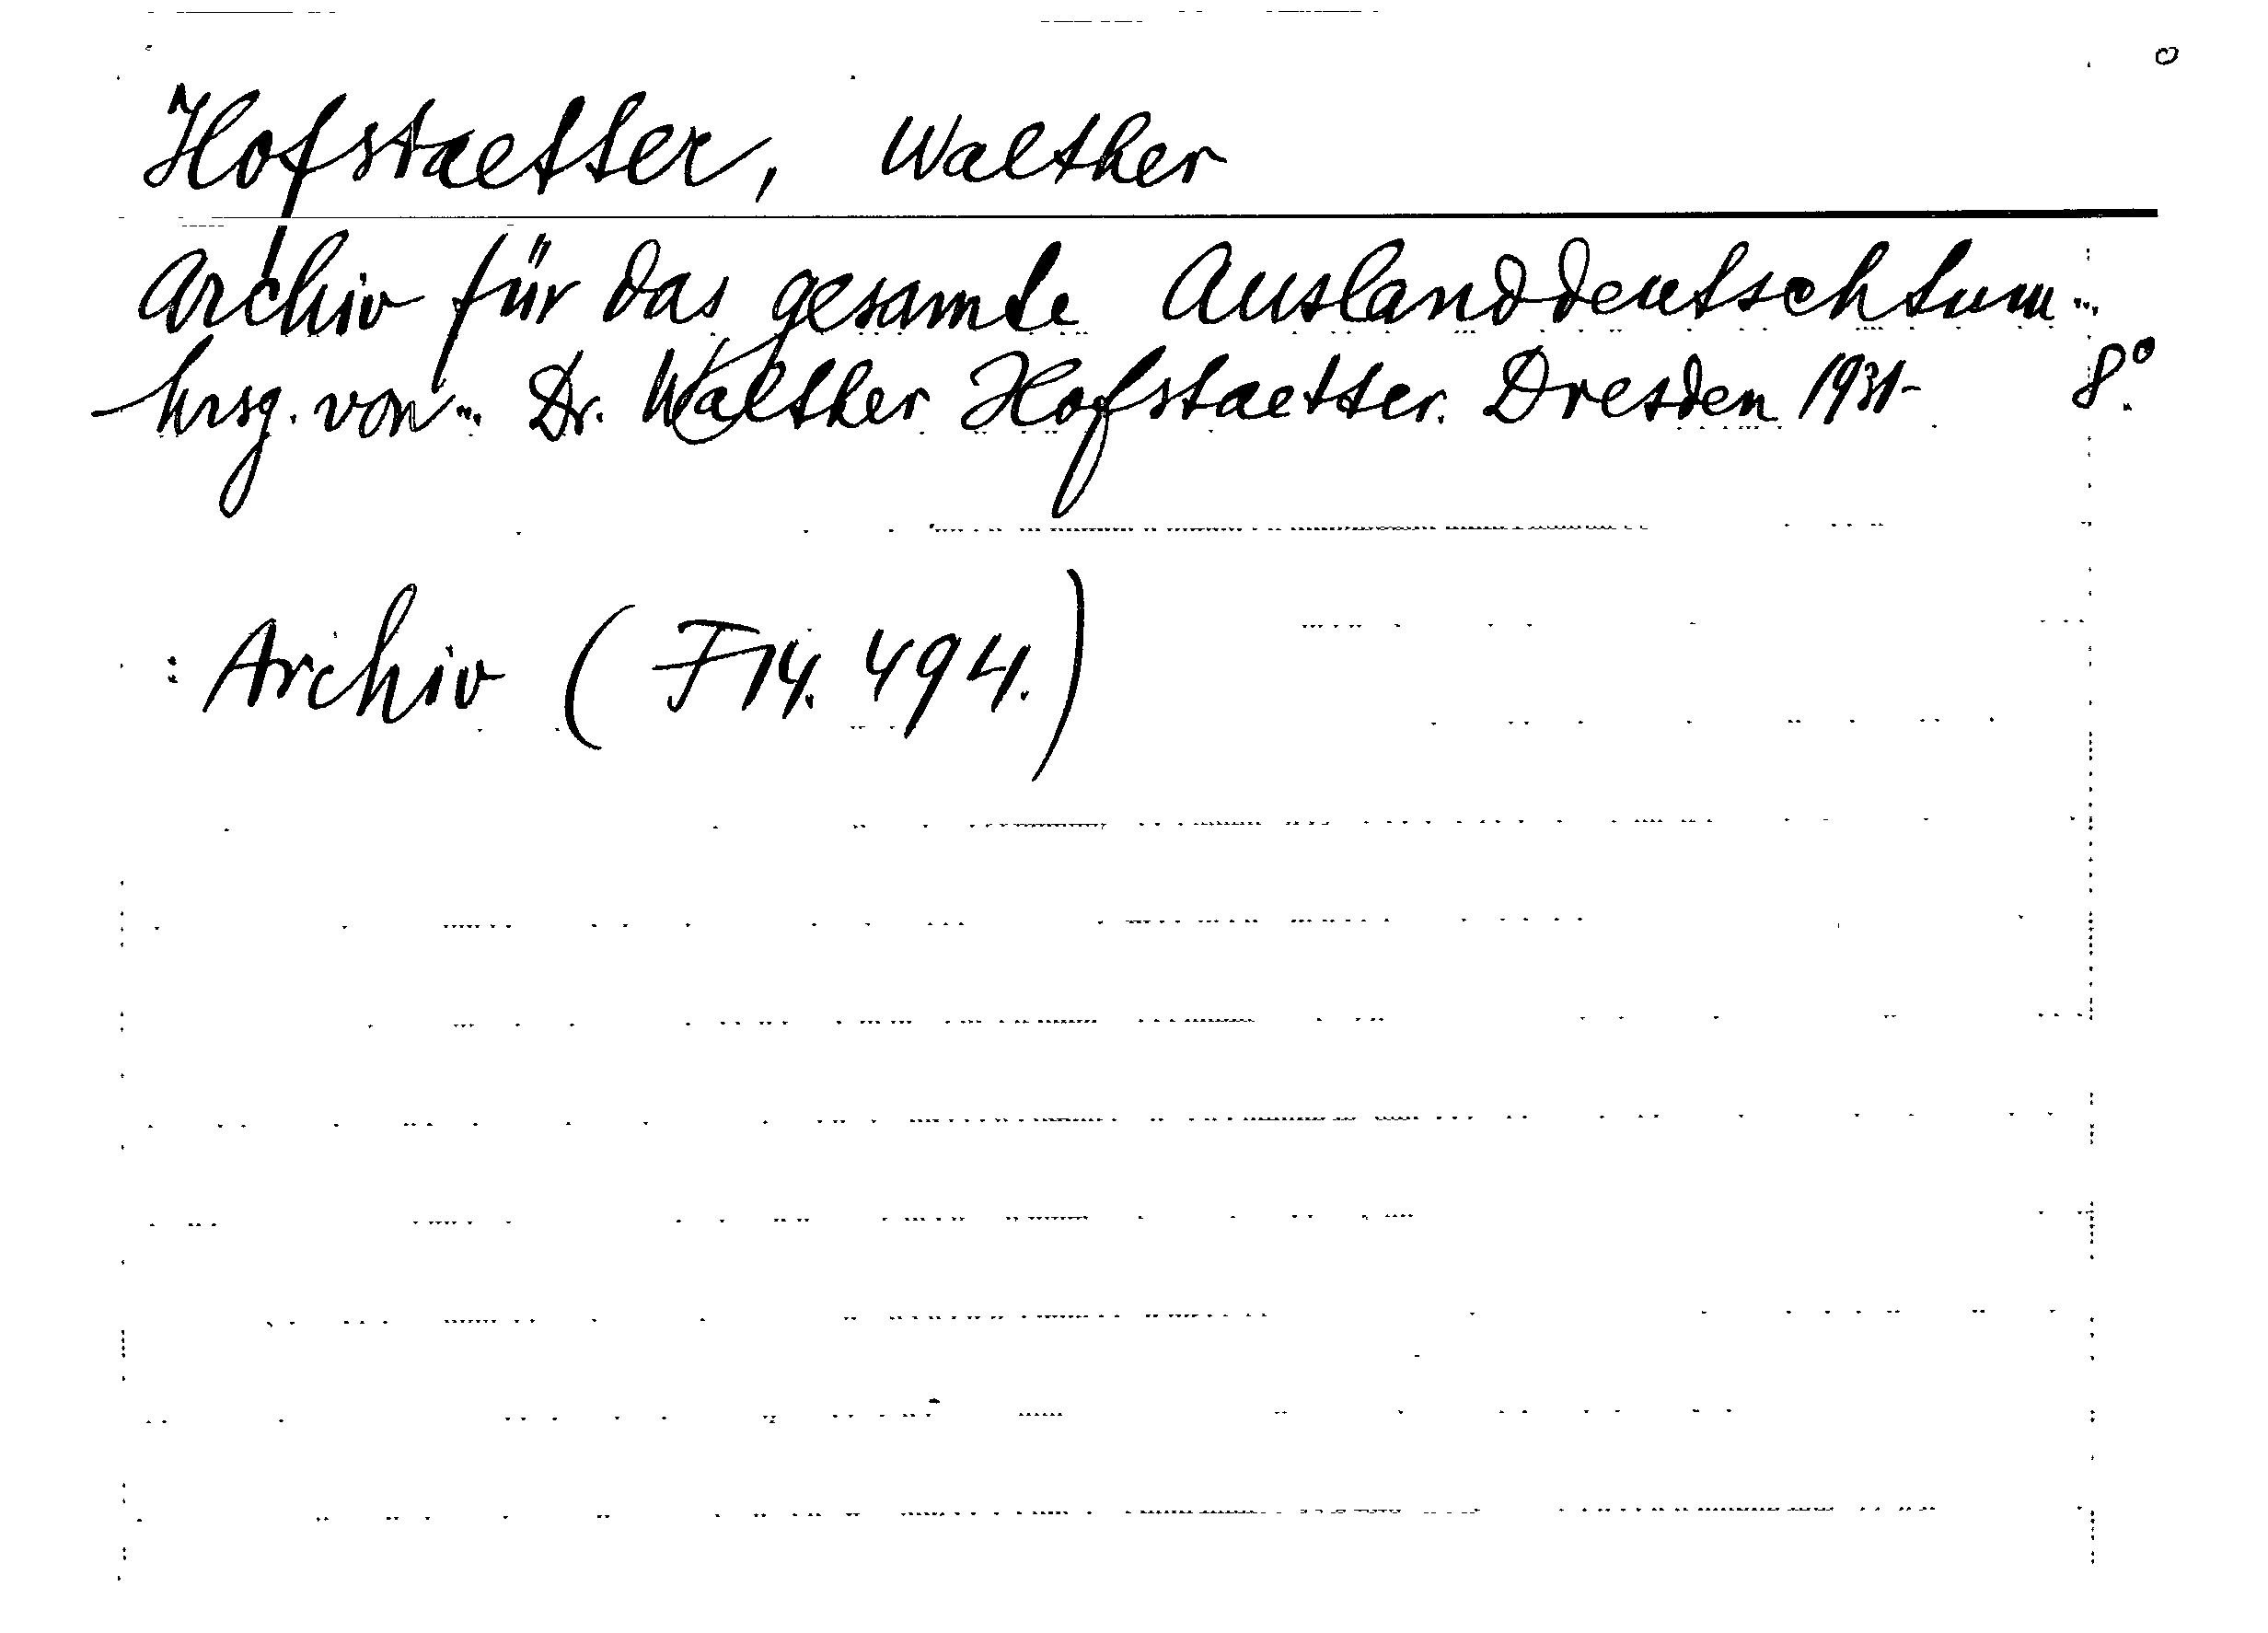 Hofstaetter, Walther
Archiv für das gesamte Auslanddeutschtum...
hrsg. von... Dr. Walther Hofstaetter. Dresden 1931- 8°.
: Archiv (F14. 494.)